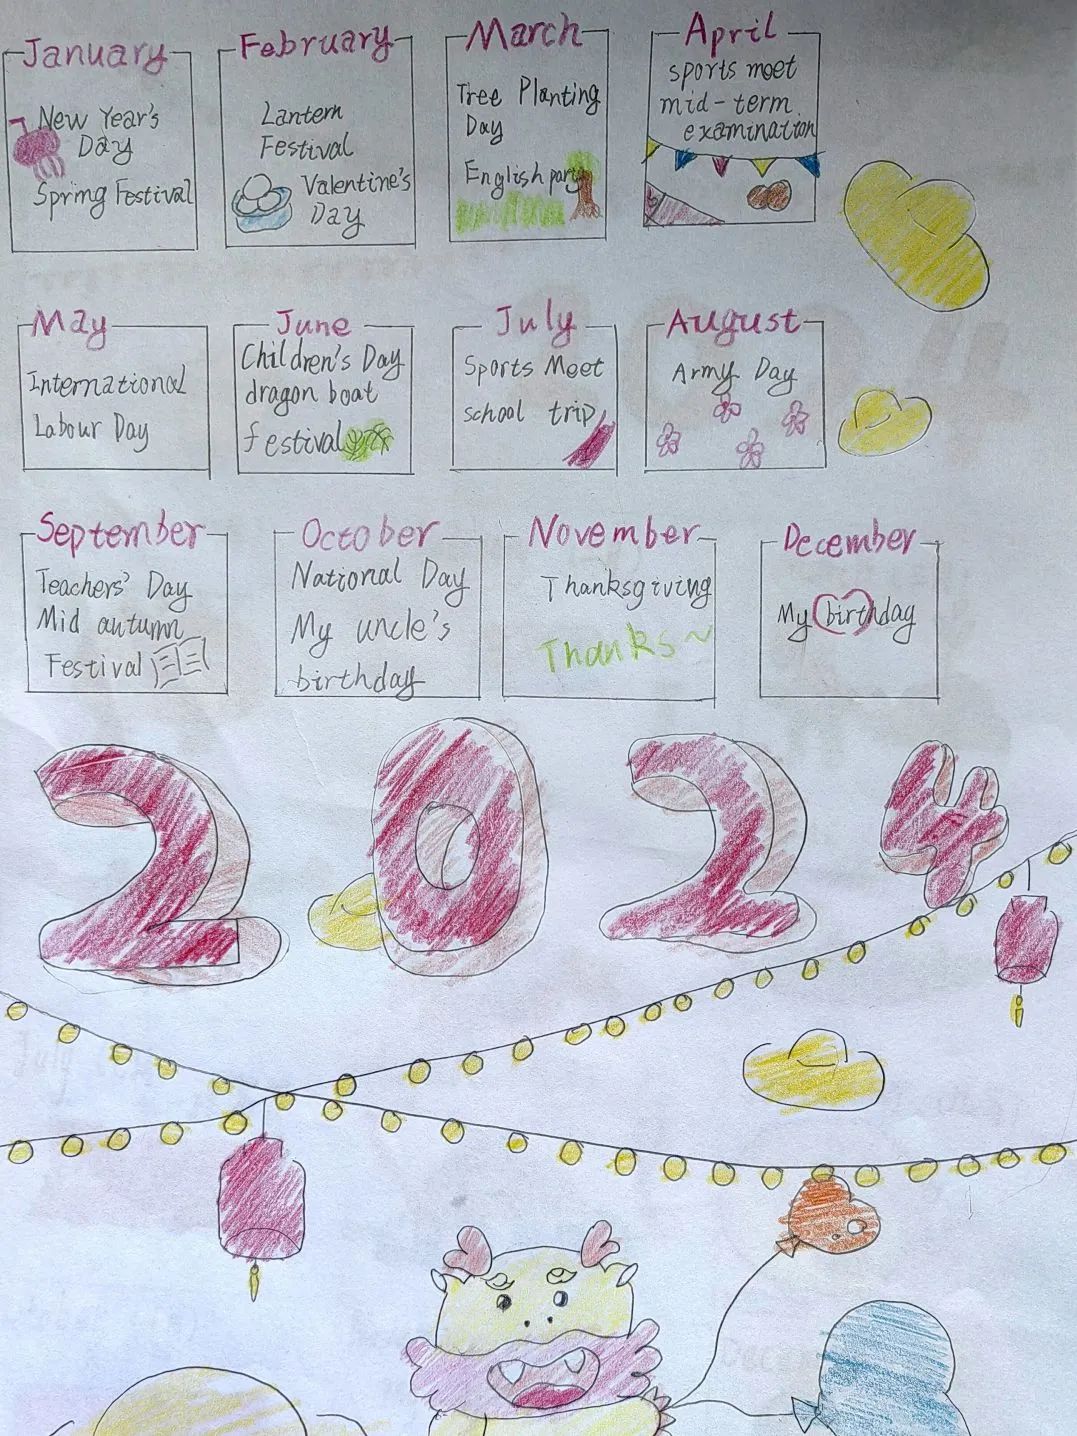 January
New Year's
Day
Spring Festival
February
Lantern
Festival
Valentine's
Day
March
Tree Planting
Day
English party
April
sports meet
mid-term
examination
May
International
Labour Day
June
Children's Day
dragon boat
festival
July
Sports Meet
school trip
August
Army Day
September
Teachers' Day
Mid autumn
Festival
October
National Day
My uncle's
birthday
November
Thanksgiving
Thanks~
December
My birthday
2024